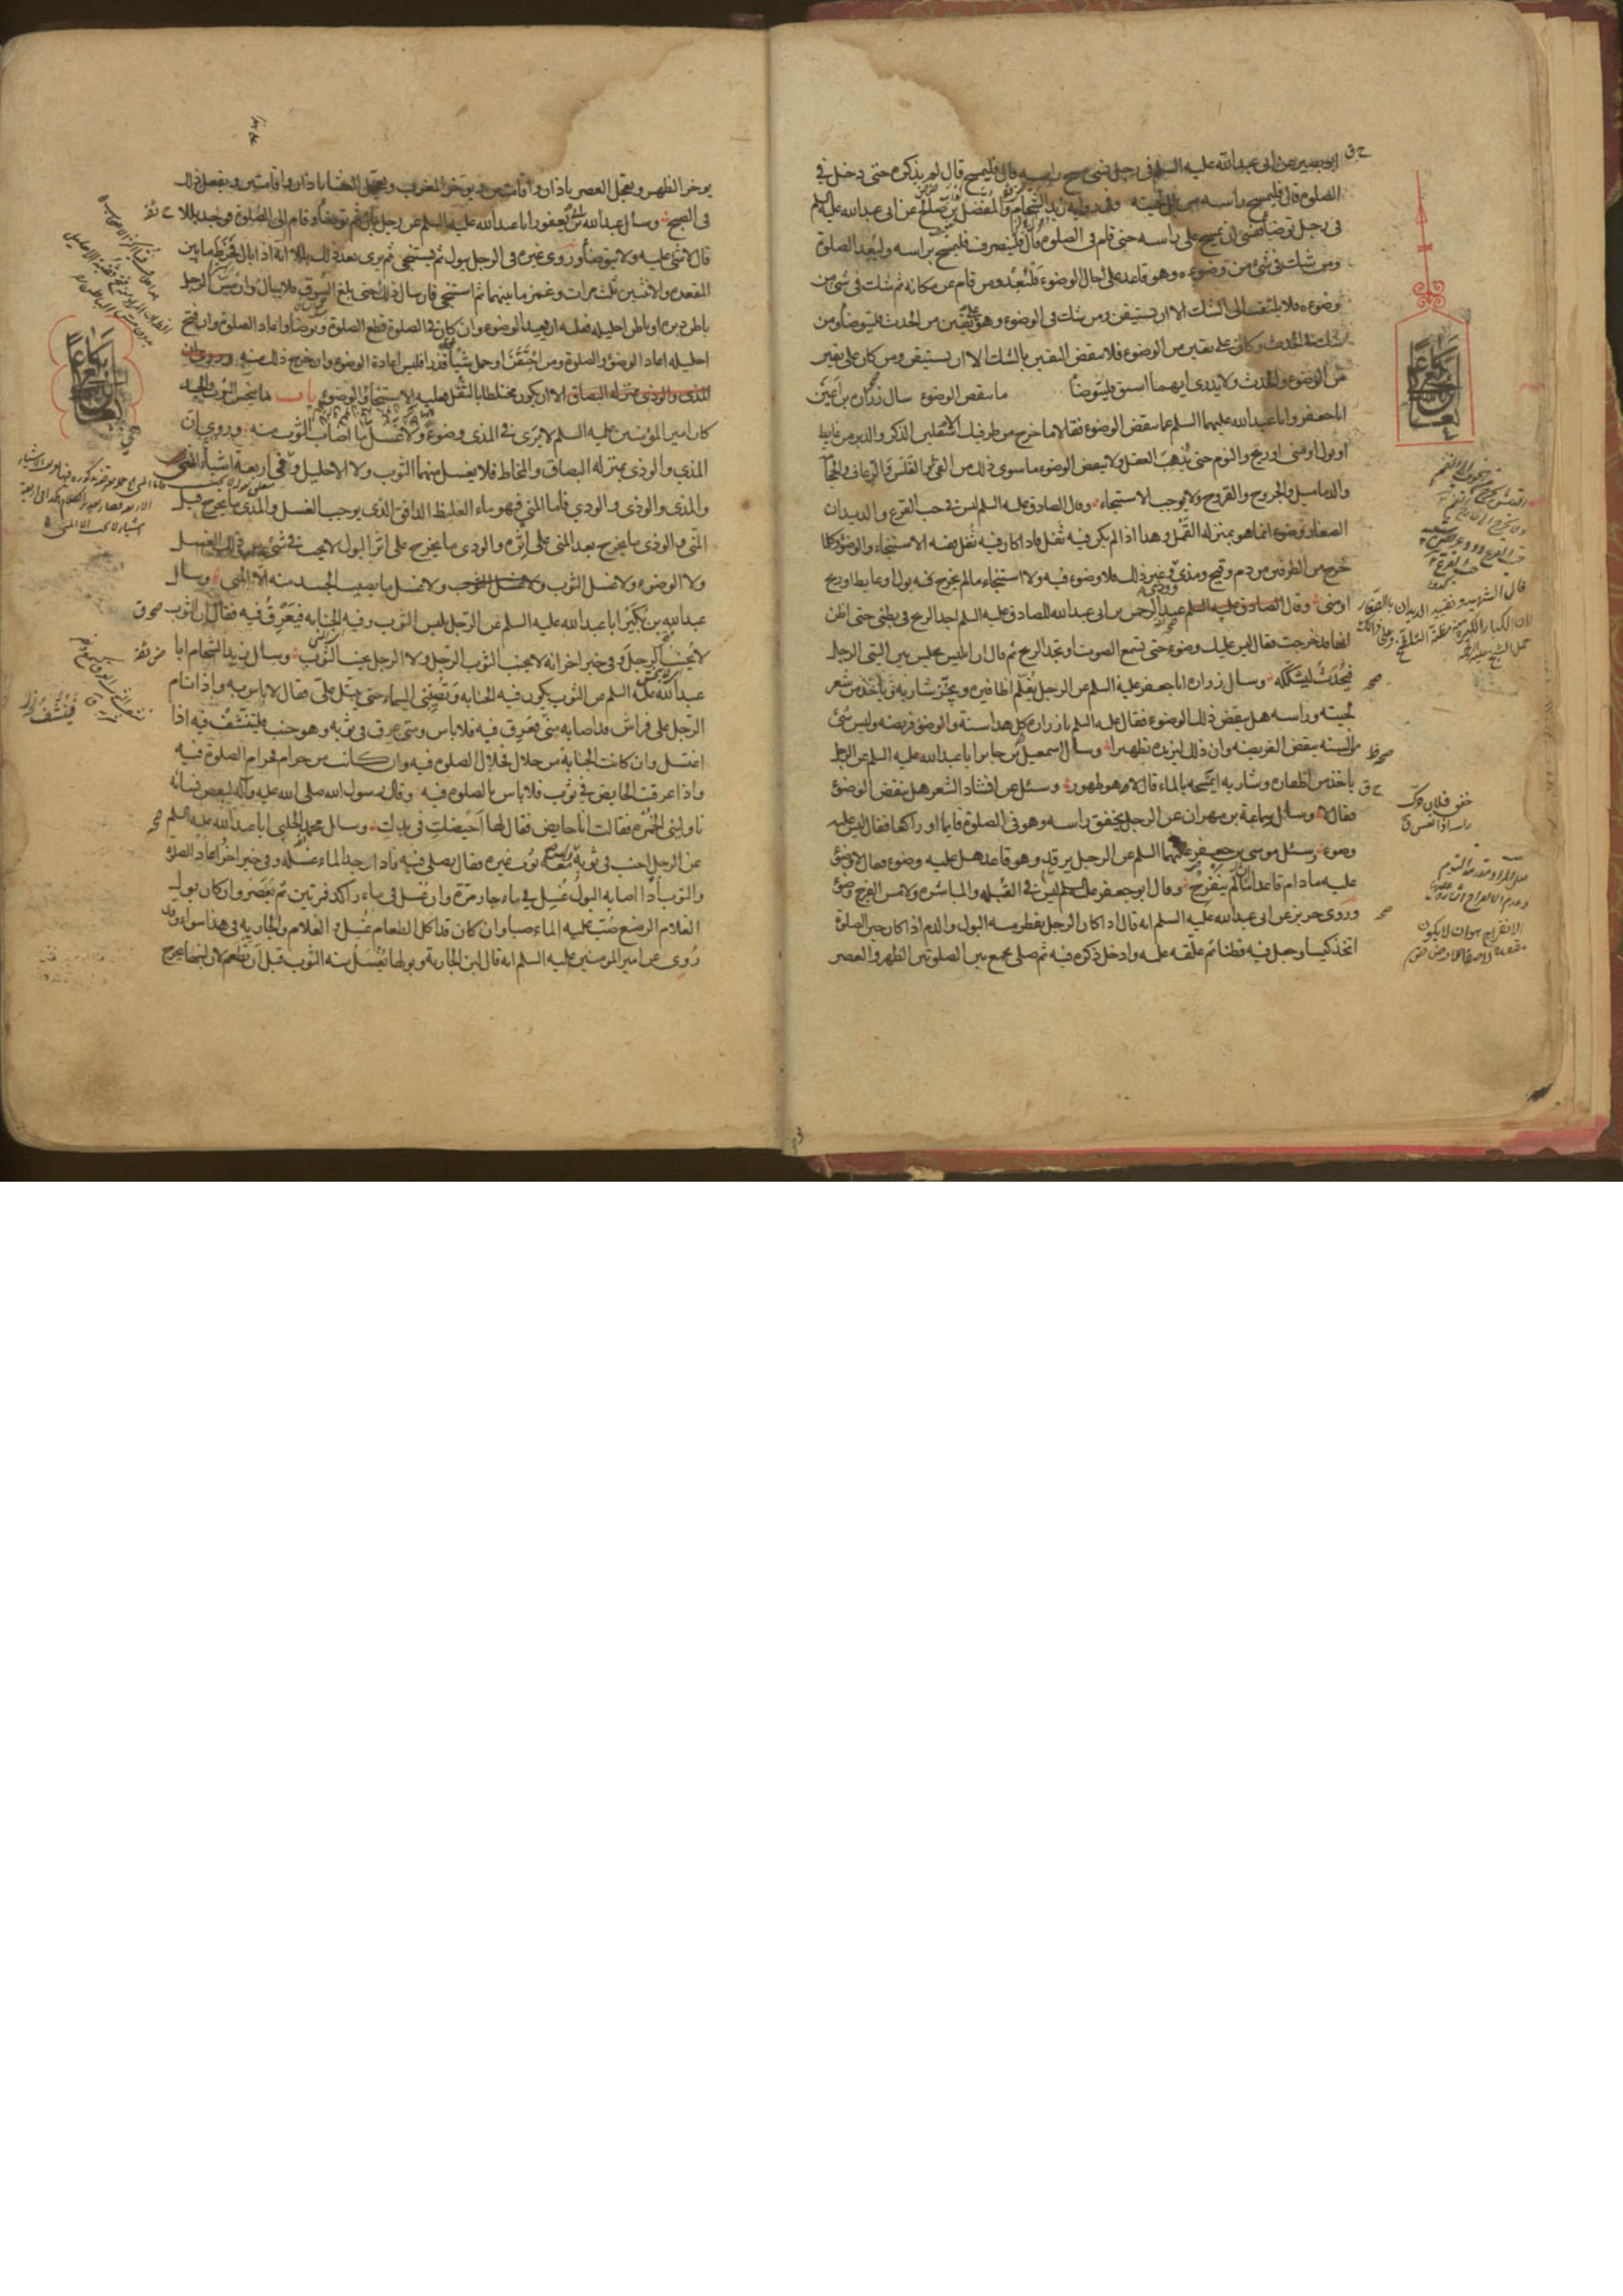 ابو بصير عن ابى عبدالله عليه السلم فى رجل نسى مسح راسه قال فليمسح قال لم يذكره حتى دخل فى
الصلوة قال فليمسح راسه من بلل لحيته وفى رواية زيد الشحام والمفضل بن صالح عن ابى عبدالله عليه السلم
فى رجل توضأ فنسى ان يمسح على راسه حتى قام فى الصلوة قال فلينصرف فليمسح براسه وليعد الصلوة
ومن شك فى شىء من وضوءه وهو قاعد على حال الوضوء فليعد ومن قام عن مكانه ثم شك فى شىء من
وضوءه فلا يلتفت الى الشك الا ان يستيقن ومن شك فى الوضوء وهو على يقين من الحدث فليتوضأ ومن
شك فى الحدث وكان على يقين من الوضوء فلا ينقض اليقين بالشك الا ان يستيقن ومن كان على يقين
من الوضوء والحدث ولا يدرى ايهما اسبق فليتوضأ ما ينقض الوضوء سال زرارة بن اعين
ابا جعفر وابا عبدالله عليهما السلم عما ينقض الوضوء فقالا ما خرج من طرفيك الاسفلين الذكر والدبر من غايط
او بول او منى او ريح والنوم حتى يذهب العقل ولا ينقض الوضوء ما سوى ذلك من القئ والقلس والرعاف والحجامة
والدماميل والجروح والقروح ولا يوجب الاستنجاء وقال الصادق عليه السلم ليس فى حب القرع والديدان
الصغار وضوء انما هو بمنزلة القمل وهذا اذا لم يكن فيه ثفل فاذا كان فيه ثفل ففيه الاستنجاء والوضوء وكلما
خرج من الطرفين من دم وقيح ومذى وودى وغير ذلك فلا وضوء فيه ولا استنجاء ما لم يخرج فيه بول او غايط او ريح
او منى وقال الصادق عليه السلم عبد الرحمن بن ابى عبدالله للصادق عليه السلم اجد الريح فى بطنى حتى اظن
انها قد خرجت فقال ليس عليك وضوء حتى تسمع الصوت او تجد الريح ثم قال ان ابليس يجلس بين اليتى الرجل
فيحدث ليشككه وسال زرارة ابا جعفر عليه السلم عن الرجل يقلم اظافيره ويجز شاربه وياخذ من شعر
لحيته وراسه هل ينقض ذلك الوضوء فقال عليه السلم يا زرارة كل هذا سنة والوضوء فريضة وليس شئ
من السنة ينقض الفريضة وان ذلك ليزيده تطهيرا وسال اسمعيل بن جابر ابا عبدالله عليه السلم عن الرجل
ياخذ من اظفاره وشاربه ايمسحه بالماء قال لا هو طهور وسئل عن انشاد الشعر هل ينقض الوضوء
فقال لا وسال سماعة بن مهران عن الرجل يخفق راسه وهو فى الصلوة قايما او راكعا فقال ليس عليه
وضوء وسئل موسى بن جعفر عليهما السلم عن الرجل يرقد وهو قاعد هل عليه وضوء فقال لا وضوء
عليه ما دام قاعدا ان لم ينفرج وقال ابو جعفر عليه السلم ليس فى القبلة والمباشرة ولا مس الفرج وضوء
وروى حريز عن ابى عبدالله عليه السلم انه قال اذا كان الرجل يقطر منه البول والدم اذا كان حين الصلوة
اتخذ كيسا وجعل فيه قطنا ثم علقه عليه وادخل ذكره فيه ثم صلى يجمع بين الصلوتين الظهر والعصر
خفق فلان حرك
راسه اذا نعس ق
يوخر الظهر ويعجل العصر باذان واقامتين ويوخر المغرب ويعجل العشا باذان واقامتين ويفعل ذلك
فى الصبح وسال عبدالله بن ابى يعفور ابا عبدالله عليه السلم عن رجل بال ثم توضأ وقام الى الصلوة فوجد بللا
قال لا شئ عليه ولا يتوضأ وروى غيره فى الرجل يبول ثم يستنجى ثم يرى بعد ذلك بللا انه اذا بال فخرط ما بين
المقعدة والانثيين ثلث مرات وغمز ما بينهما ثم استنجى فان سال ذلك حتى بلغ السوق فلا يبال وان مس الرجل
باطن دبره او باطن احليله فعليه ان يعيد الوضوء وان كان فى الصلوة قطع الصلوة وتوضأ واعاد الصلوة وان فتح
احليله اعاد الوضوء والصلوة ومن احتقن او حمل شيأ فقذر افليس اعادة الوضوء وان خرج ذلك منه وروى ان
المذى والوذى بمنزلة البصاق الا ان يكون مختلطا بالثفل فعليه الاستنجاء والوضوء باب ما ينجس الثوب والجسد
كان امير المؤمنين عليه السلم لا يرى فى المذى وضوء ولا غسل ما اصاب الثوب منه وروى ان
المذي والوذى بمنزلة البصاق والمخاط فلا يغسل منهما الثوب ولا الاحليل وفى اربعة اشياء المنى
والمذى والوذى والودي فاما المنى فهو ماء الغليظ الدافق الذى يوجب الغسل والمذى ما يخرج قبل
المنى والوذى ما يخرج بعد المنى على اثره والودى ما يخرج على اثر البول لا يجب فى شئ من ذلك الغسل
ولا الوضوء ولا غسل الثوب ولا غسل ما يصيب الجسد منه الا المنى وسال
عبدالله بن بكير ابا عبدالله عليه السلم عن الرجل يلبس الثوب وفيه الجنابة فيعرق فيه فقال ان الثوب
لا يجنب الرجل وفى خبر اخر انه لا يجنب الثوب الرجل ولا الرجل يجنب الثوب وسال زيد الشحام ابا
عبدالله عليه السلم عن الثوب يكون فيه الجنابة وتصيبنى السماء حتى يبتل على فقال لا باس به واذا نام
الرجل على فراش قد اصابه منى فعرق فيه فلا باس ومتى عرق فى ثوبه وهو جنب فليتنشف فيه اذا
اغتسل وان كانت الجنابة من حلال فحلال الصلوة فيه وان كانت من حرام فحرام الصلوة فيه
واذا عرقت الحايض فى ثوب فلا باس بالصلوة فيه وقال رسول الله صلى الله عليه وآله لبعض نسائه
ناولينى الخمرة فقالت انا حايض فقال لها احيضك فى يدك وسال محمد الحلبى ابا عبدالله عليه السلم
عن الرجل اجنب فى ثوبه وليس معه ثوب غيره فقال يصلى فيه فاذا وجد الماء غسله وفى خبر اخر واعاد الصلوة
والثوب اذا اصابه البول غسل فى ماء جار مرة وان غسل فى ماء راكد فمرتين ثم يعصر وان كان بول
الغلام الرضيع صب عليه الماء صبا وان كان قد اكل الطعام غسل والغلام والجارية فى هذا سواء وقد
روى عن امير المومنين عليه السلم انه قال لبن الجارية وبولها يغسل منه الثوب قبل ان تطعم لان لبنها يخرج